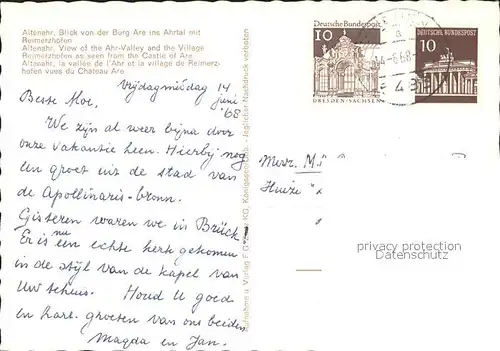 Altenahr, Blick von der Burg Are ins Ahrtal mit
Reimerzhofen
Altenahr, View of the Ahr-Valley and the Village
Reimerzhofen as seen from the Castle of Are
Altenahr, la vallée de l'Ahr et la village de Reimerz-
hofen vues du Chateau Are
Vrijdagmiddag 14
juni
'68
Beste Moe,
We zijn al weer bijna door
onze vakantie heen. Hierbij nog
een groet uit de stad van
de Apollinaris-bronn.
Gisteren waren we in Brück
Er is nu een echte kerk gekomen
in de stijl van de kapel van
Uw tehuis. Houd U goed
en hart. groeten van ons beiden
Magda en Jan.
Jeglicher Nachdruck verboten
Deutsche Bundespost
10
DRESDEN/SACHSEN
DEUTSCHE BUNDESPOST
10
a
14-6.68
Mevr. M
Huize
privacy protection
watermark